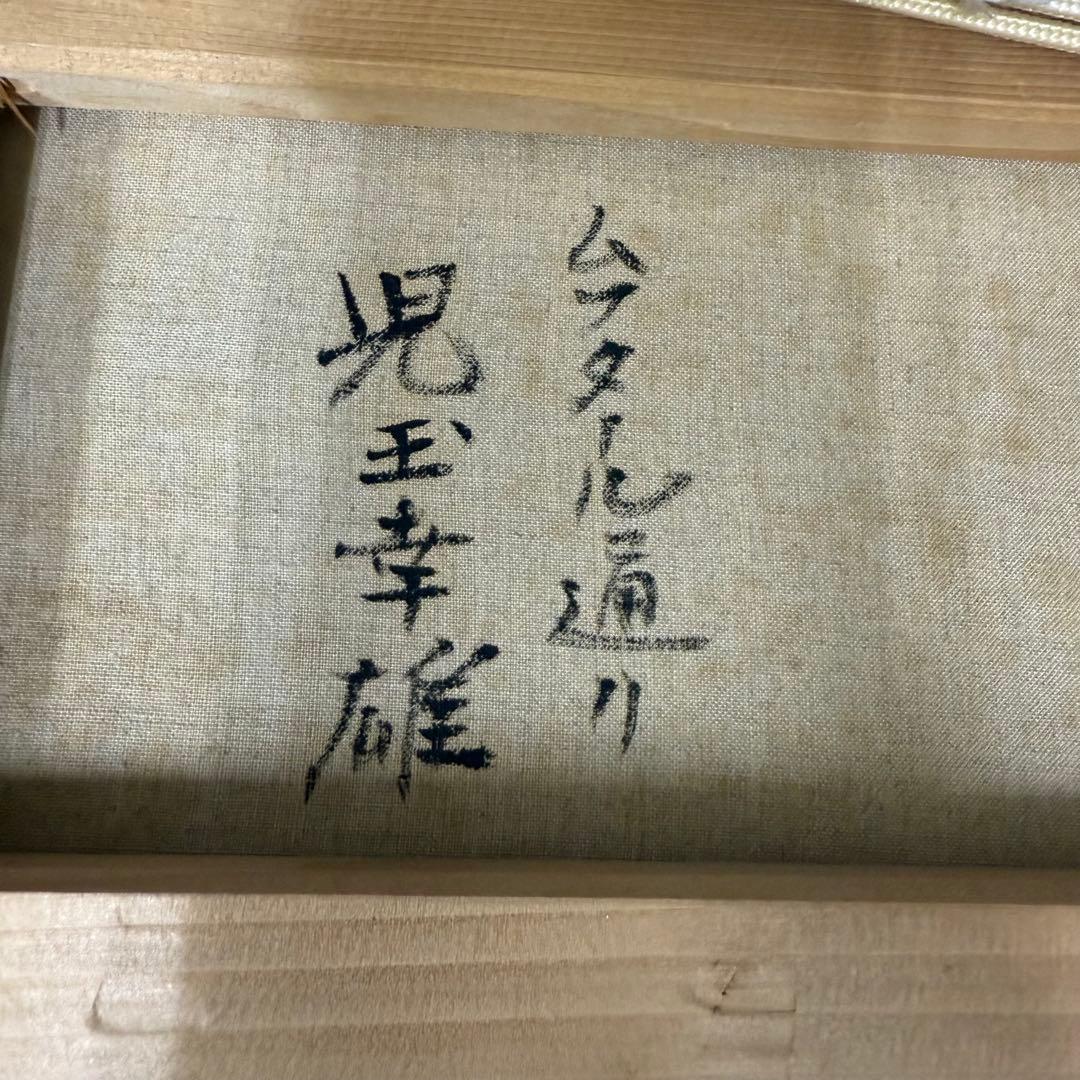 ムフタール通り
児玉幸雄